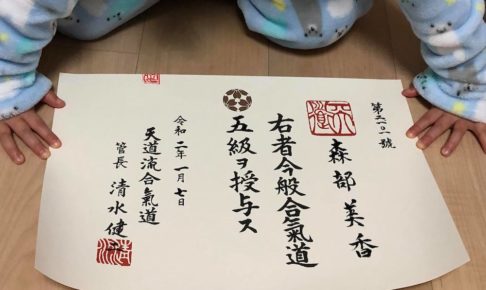 第二一〇一號
森部美香
右者今般合氣道
五級ヲ授与ス
令和二年一月七日
天道流合氣道
管長 清水健